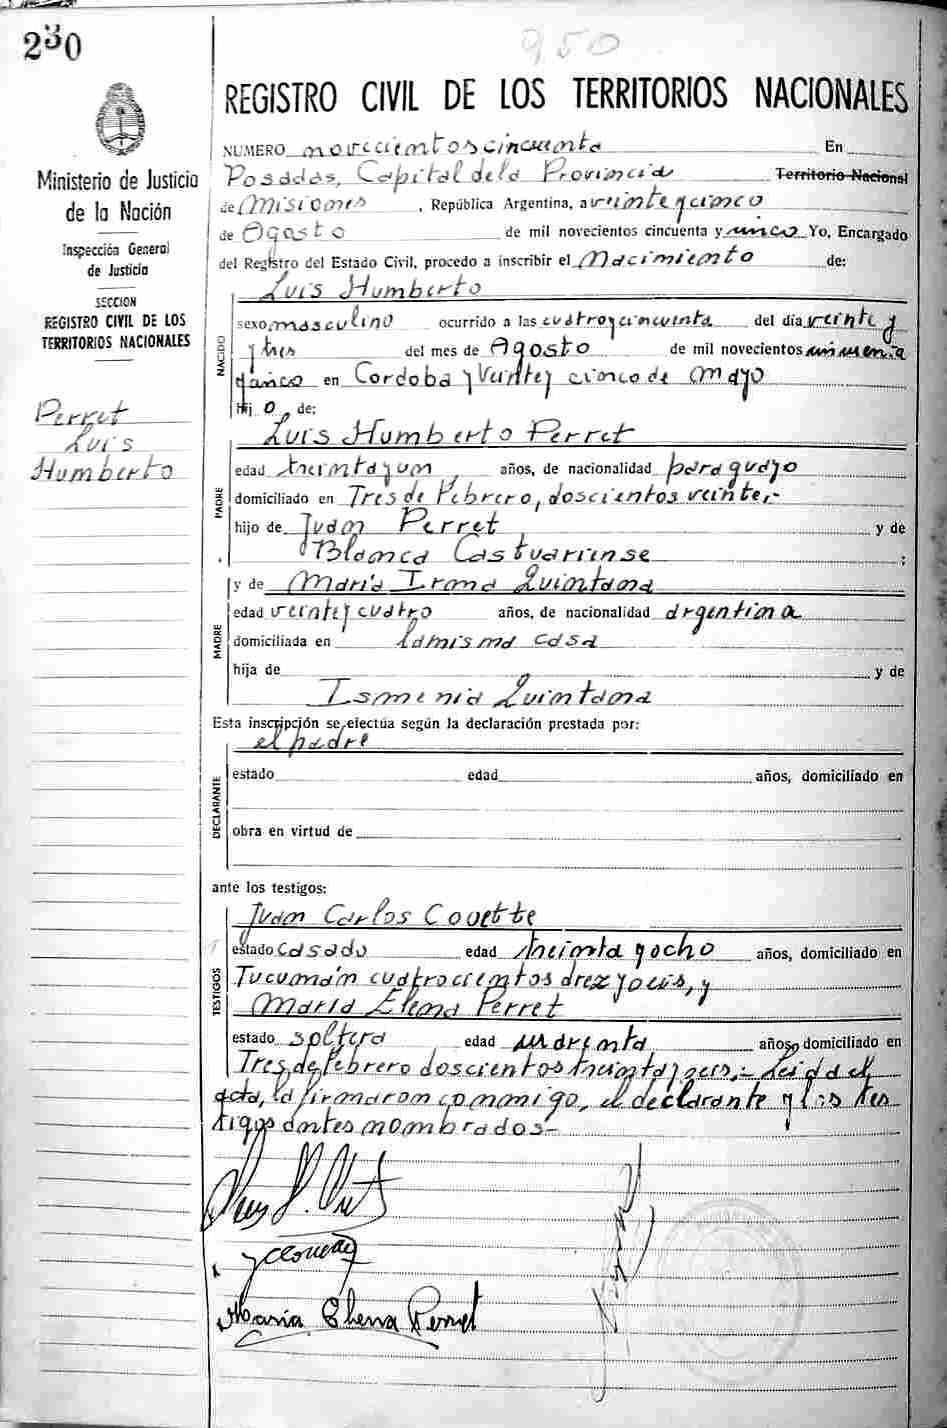 230
950
REGISTRO CIVIL DE LOS TERRITORIOS NACIONALES
Ministerio de Justicia
de la Nación
Inspección General
de Justicia
SECCION
REGISTRO CIVIL DE LOS
TERRITORIOS NACIONALES
Perret
Luis
Humberto
NUMERO novecientos cincuenta En
Posadas, Capital de la Provincia Territorio Nacional
de Misiones, República Argentina, a veinte y cinco
de Agosto de mil novecientos cincuenta y cinco Yo, Encargado
del Registro del Estado Civil, procedo a inscribir el Nacimiento de:
NACIDO
Luis Humberto
sexo masculino ocurrido a las cuatro y cincuenta del día veinte y
y tres del mes de Agosto de mil novecientos cincuenta
y cinco en Cordoba y Veinte y cinco de Mayo
Hij o de:
PADRE
Luis Humberto Perret
edad treinta y un años, de nacionalidad paraguayo
domiciliado en Tres de Febrero, doscientos veinte,-
hijo de Juan Perret y de
Blanca ;
MADRE
y de Maria Irma Quintana
edad veinte y cuatro años, de nacionalidad argentina
domiciliada en la misma casa
hija de y de
Ismenia Quintana
Esta inscripción se efectúa según la declaración prestada por:
el padre
DECLARANTE
estado edad años, domiciliado en
obra en virtud de
ante los testigos:
TESTIGOS
Juan Carlos Couette
estado casado edad treinta y ocho años, domiciliado en
Tucumán cuatrocientos diez y seis, y
Maria Elena Perret
estado soltera edad cuarenta años, domiciliado en
Tres de Febrero doscientos treinta y seis,- Leida el
acta, la firmaron conmigo, el declarante y los tes
tigos antes nombrados-
Maria Elena Perret